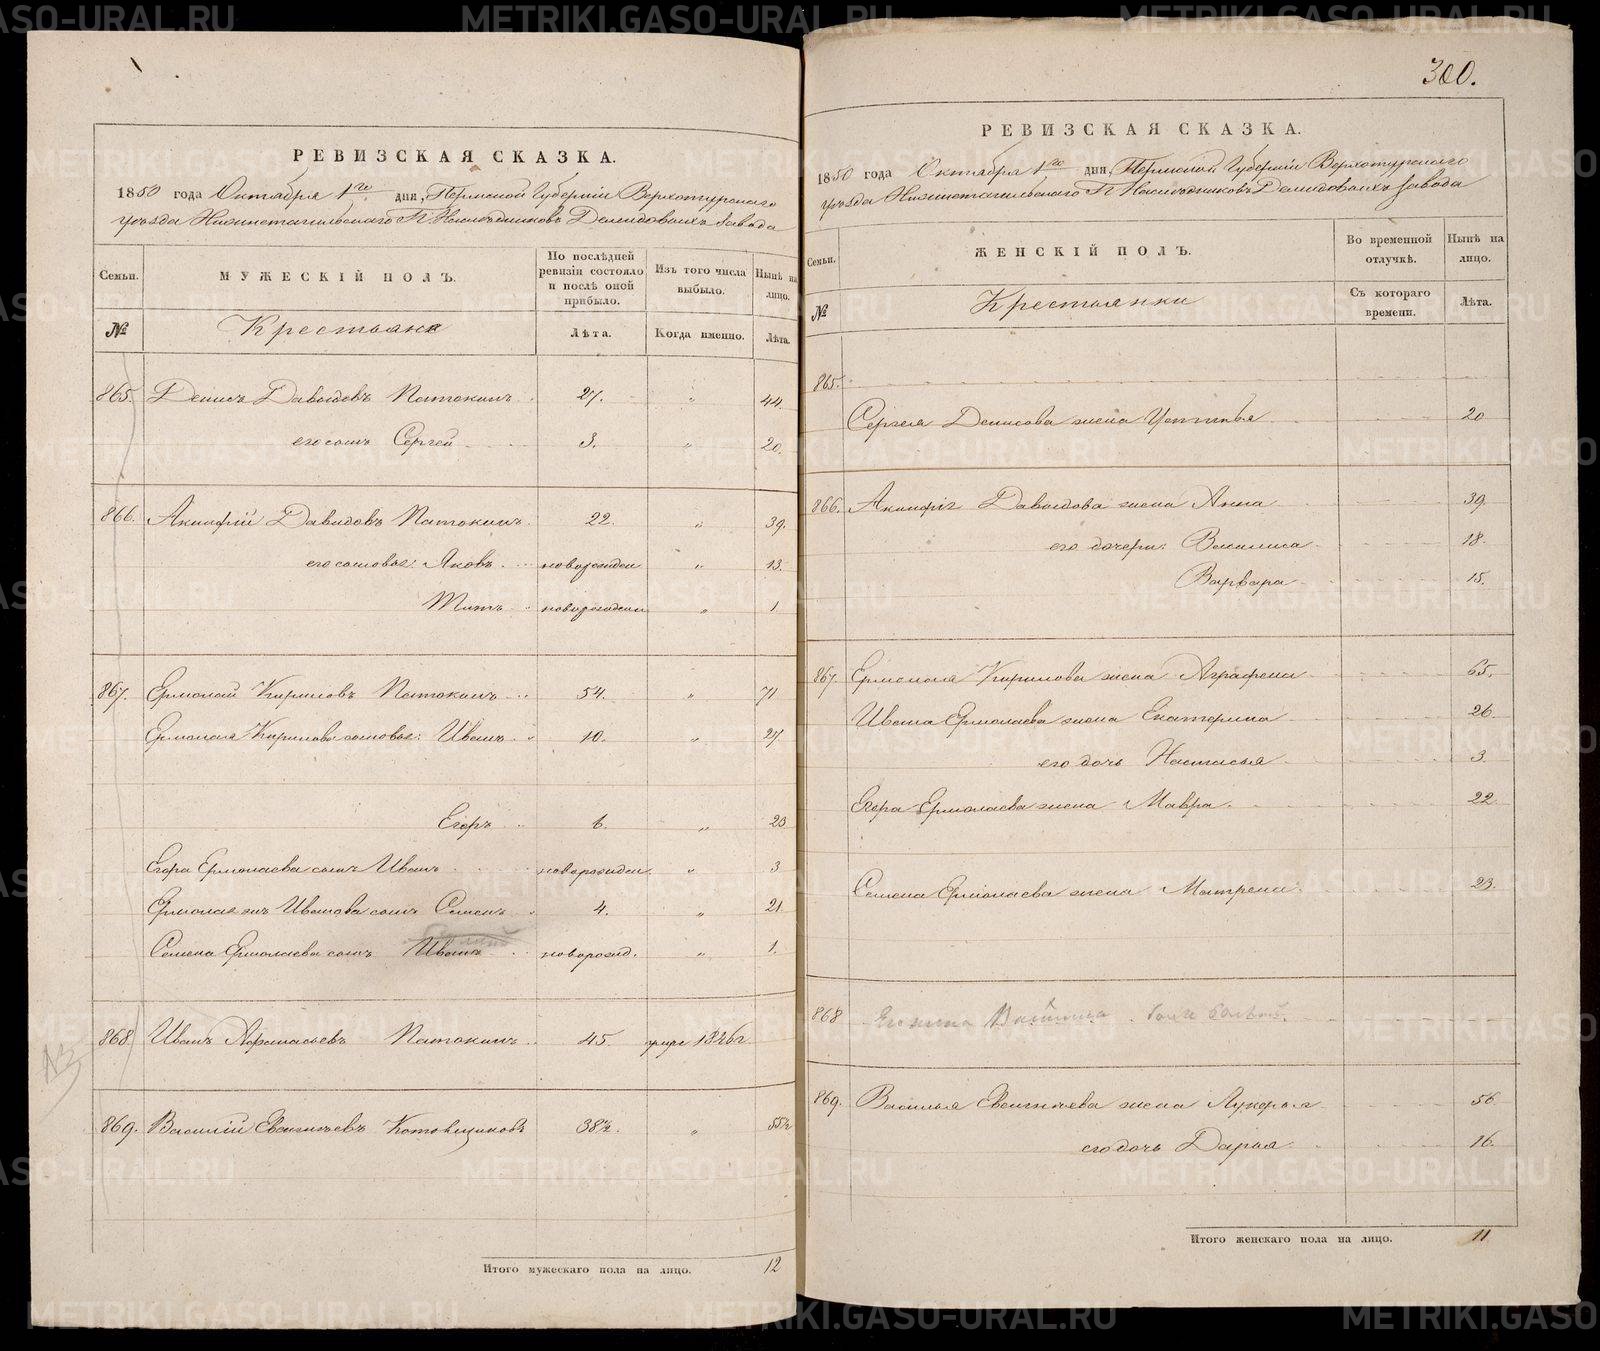 РЕВИЗСКАЯ СКАЗКА.
1850 года Октября 1го дня, Пермской Губерніи Верхотурскаго
уѣзда Нижнетагильскаго Г. Наслѣдниковъ Демидовыхъ завода
Семьи. МУЖЕСКІЙ ПОЛЪ. По послѣдней ревизіи состояло и послѣ оной прибыло. Изъ того числа выбыло. Нынѣ на лицо.
№ Крестьяне Лѣта. Когда именно. Лѣта.
865. Денисъ Давыдовъ Патокинъ 27. " 44.
его сынъ Сергей 3. " 20.
866. Акинфій Давыдовъ Патокинъ 22. " 39.
его сыновья: Яковъ новорожден " 13.
Титъ новорожден " 1
867. Ермолай Кириловъ Патокинъ 54. " 71
Ермолая Кирилова сыновья: Иванъ 10. " 27
Егоръ 6. " 23
Егора Ермолаева сынъ Иванъ новорожден. " 3
Ермолая Иванова сынъ Семенъ 4. " 21
Семена Ермолаева сынъ Иванъ новорожд. " 1.
868. Иванъ Афанасьевъ Патокинъ 45. умре 1846г
869. Василій Евгеньевъ Котовщиковъ 38½. " 55½
Итого мужескаго пола на лицо. 12
300.
РЕВИЗСКАЯ СКАЗКА.
1850 года Октября 1го дня, Пермской Губерніи Верхотурскаго
уѣзда Нижнетагильскаго Г. Наслѣдниковъ Демидовыхъ завода
Семьи. ЖЕНСКІЙ ПОЛЪ. Во временной отлучкѣ. Нынѣ на лицо.
№ Крестьянки Съ котораго времени. Лѣта.
865.
Сергея Денисова жена Устинья 20
866. Акинфія Давыдова жена Анна 39.
его дочери: Василиса 18.
Варвара 15.
867. Ермолая Кирилова жена Аграфена 65.
Ивана Ермолаева жена Екатерина 26
его дочь Настасья 3.
Егора Ермолаева жена Мавра. 22
Семена Ермолаева жена Матрена 23.
868 Его жена
869. Василья Евгеньева жена Лукерья 56
его дочь Дарья 16.
Итого женскаго пола на лицо. 11
METRIKI.GASO-URAL.RU